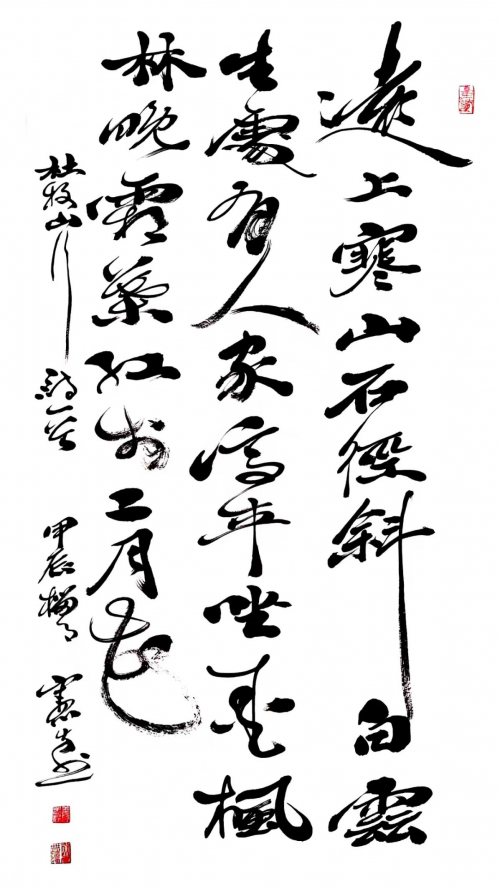 遠上寒山石徑斜白雲
生處有人家停車坐愛楓
林晚霜葉紅於二月花
杜牧山行詩一首 甲辰榴月